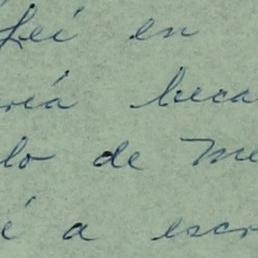 Leí en
ría beca
lo de Me
é a escr